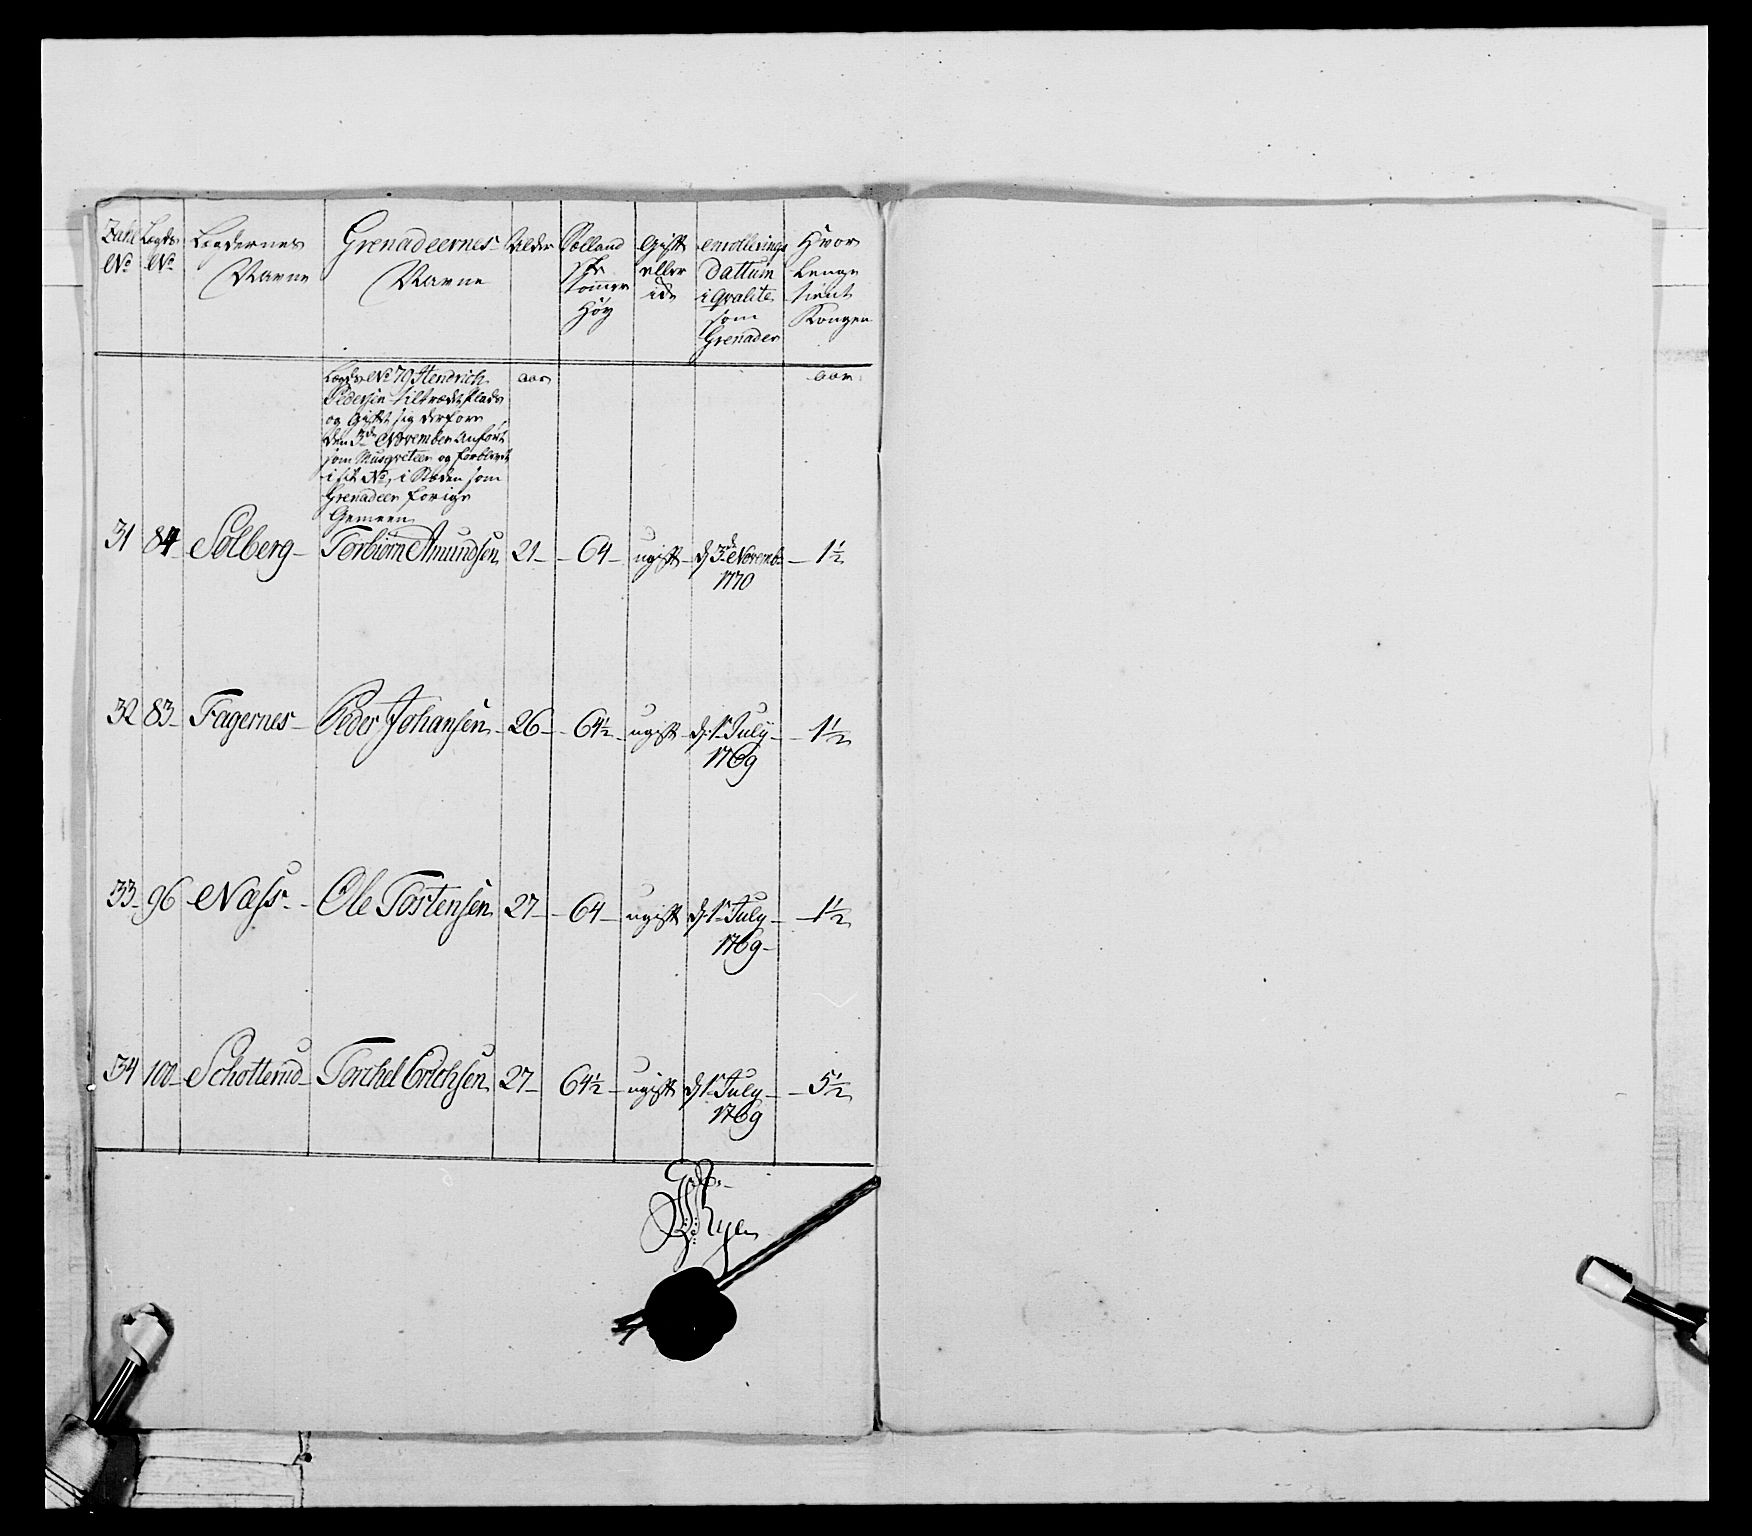 Zahl No Legds No Legdernes Navne Grenadeernes Navne Alder Sællandske tommer Høy Gift eller ide enrollerings Dattum i qvalite som Grenadeer Hvor Lenge tient Kongen
aar aar
Legds No 79 Hendrich
Pedersen tiltrædt plads
og Gift sig derfore
den 3de November anført
som Musqveteer og forblevet
i sit No, i Stæden som
Grenadeer forige
Gemeen
31 84 Solberg Torbiørn Amundsen 21 64 ugift d 3de Novemb: 1770 1½
32 83 Fagernes Peder Johansen 26 64½ ugift d: 1te July 1769 1½
33 96 Næss Ole Tostensen 27 64 ugift d: 1te July 1769 1½
34 100 Schotterud Torchel Erichsen 27 64½ ugift d: 1te July 1769 5½
Rye